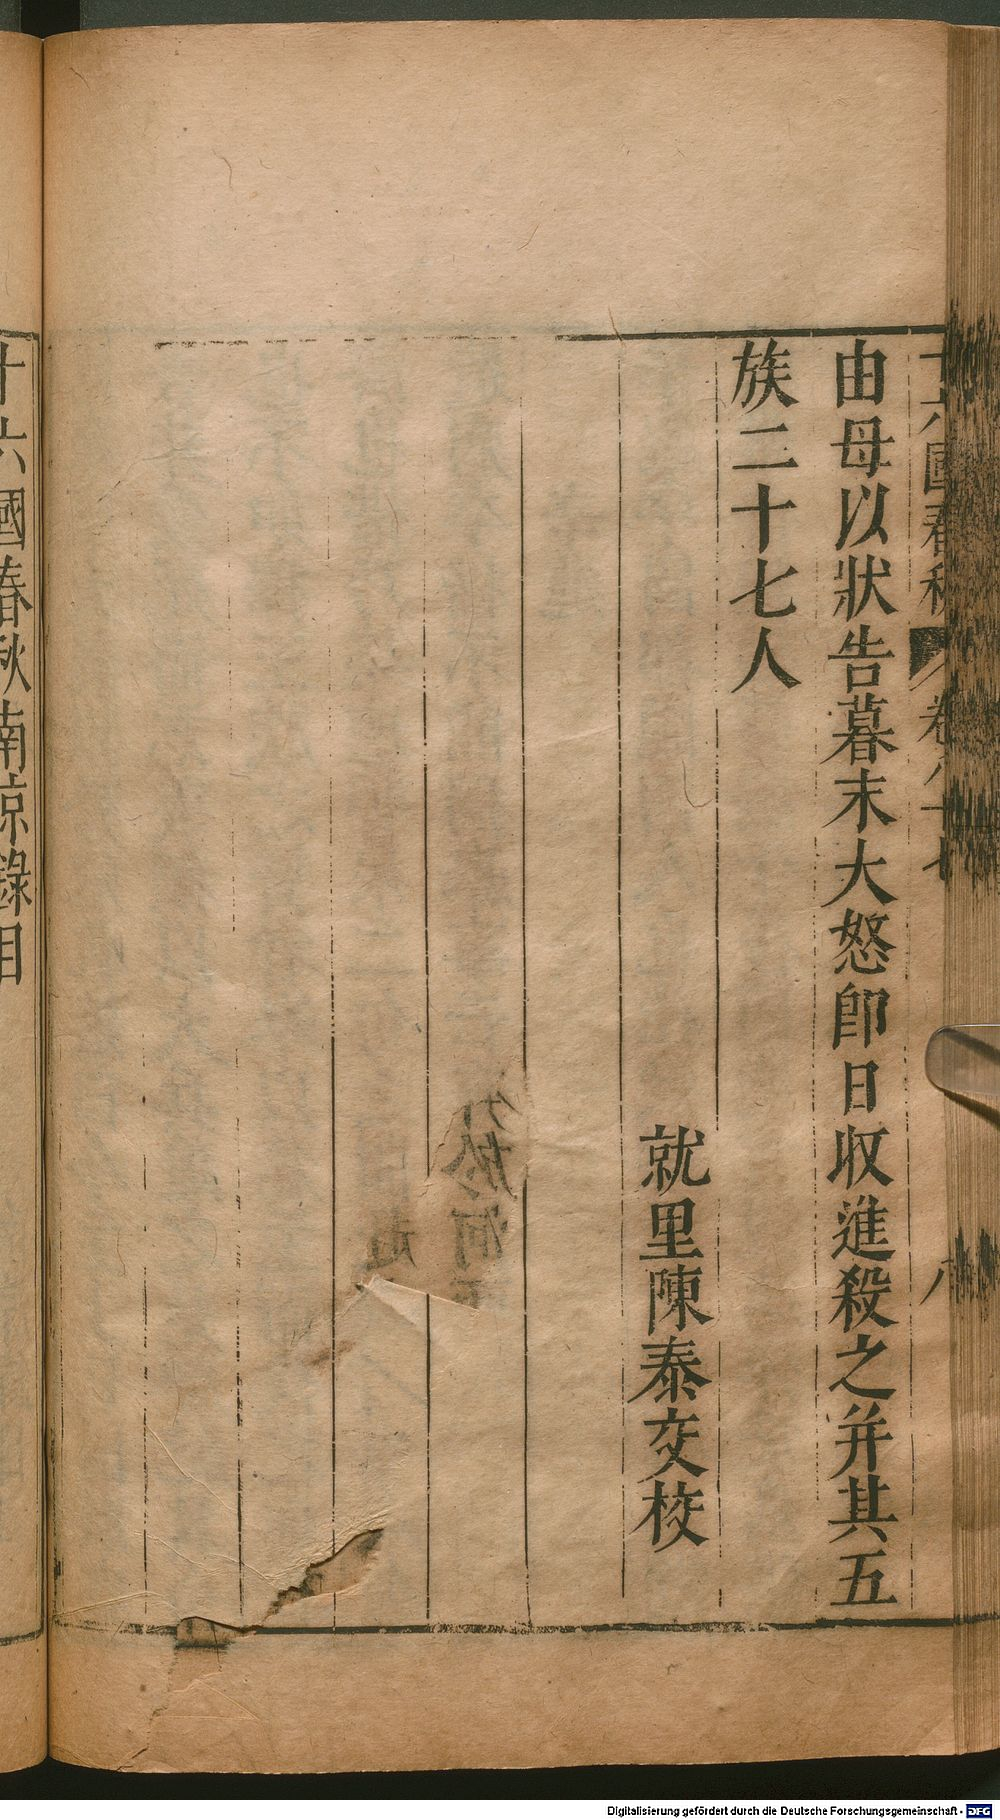 十六國春秋 卷八十七 八
由母以狀告暮末大怒即日收進殺之并其五
族二十七人
就里陳泰交校
十六國春秋南涼錄目
Digitalisierung gefördert durch die Deutsche Forschungsgemeinschaft - DFG